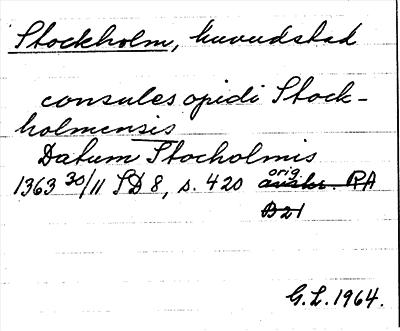 Stockholm, huvudstad
consules opidi Stock-
holmensis
Datum Stocholmis
1363 30/11 SD 8, s. 420 orig. avskr. RA
B 21
G.L. 1964.